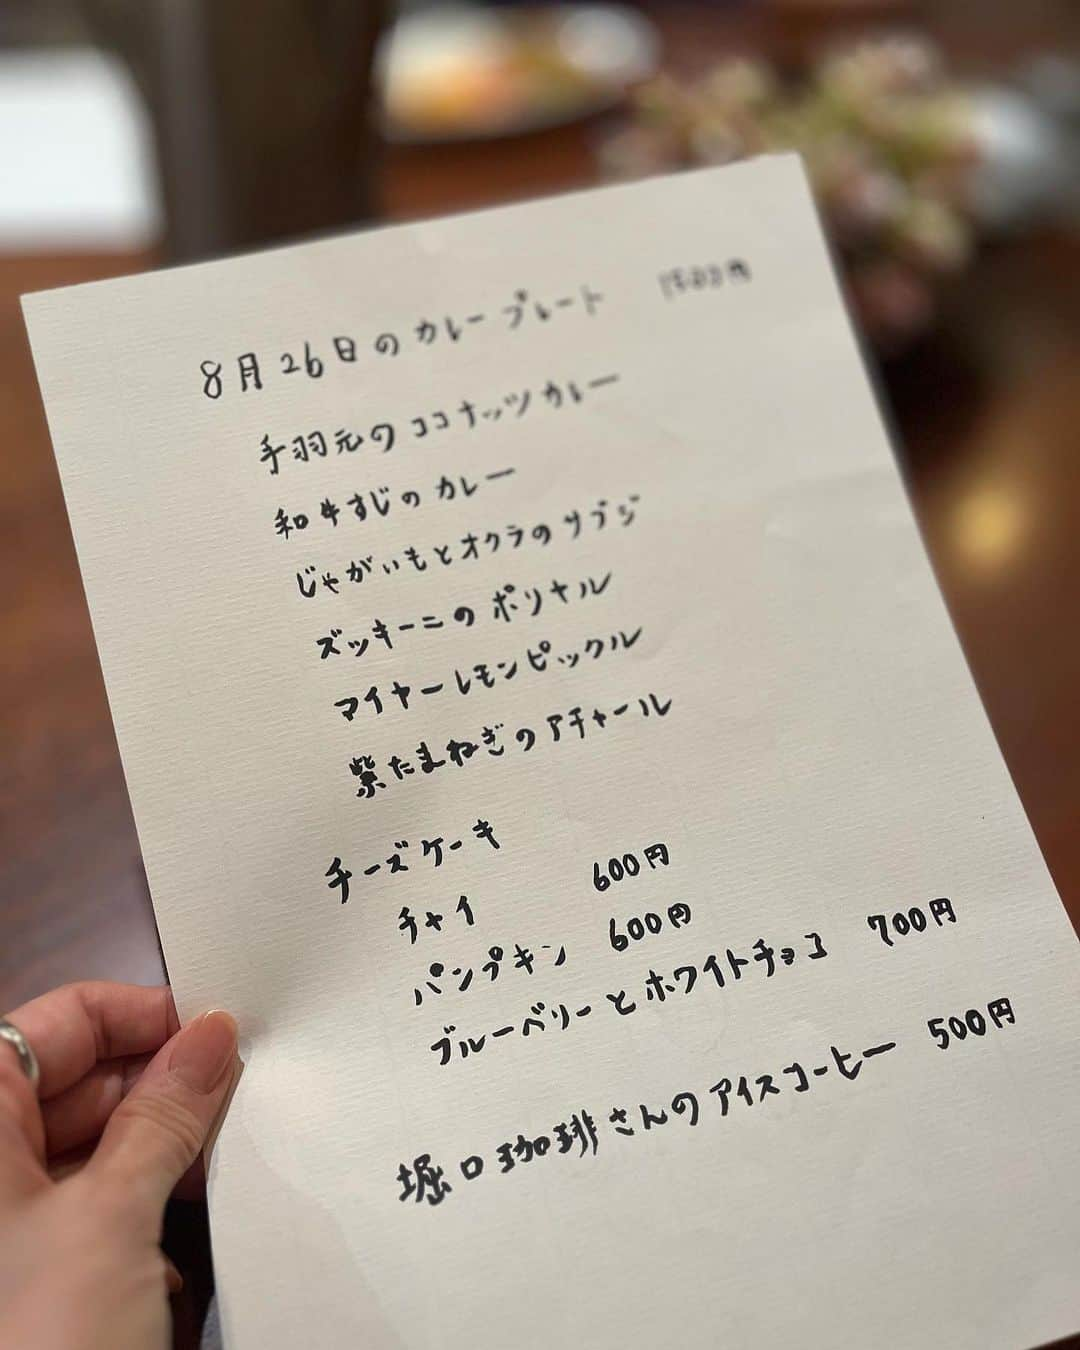 8月26日のカレープレート
手羽元のココナッツカレー
和牛すじのカレー
じゃがいもとオクラのサブジ
ズッキーニのポリヤル
マイヤーレモンピックル
紫たまねぎのアチャール
チーズケーキ
チャイ 600円
パンプキン 600円
ブルーベリーとホワイトチョコ 700円
堀口珈琲さんのアイスコーヒー 500円